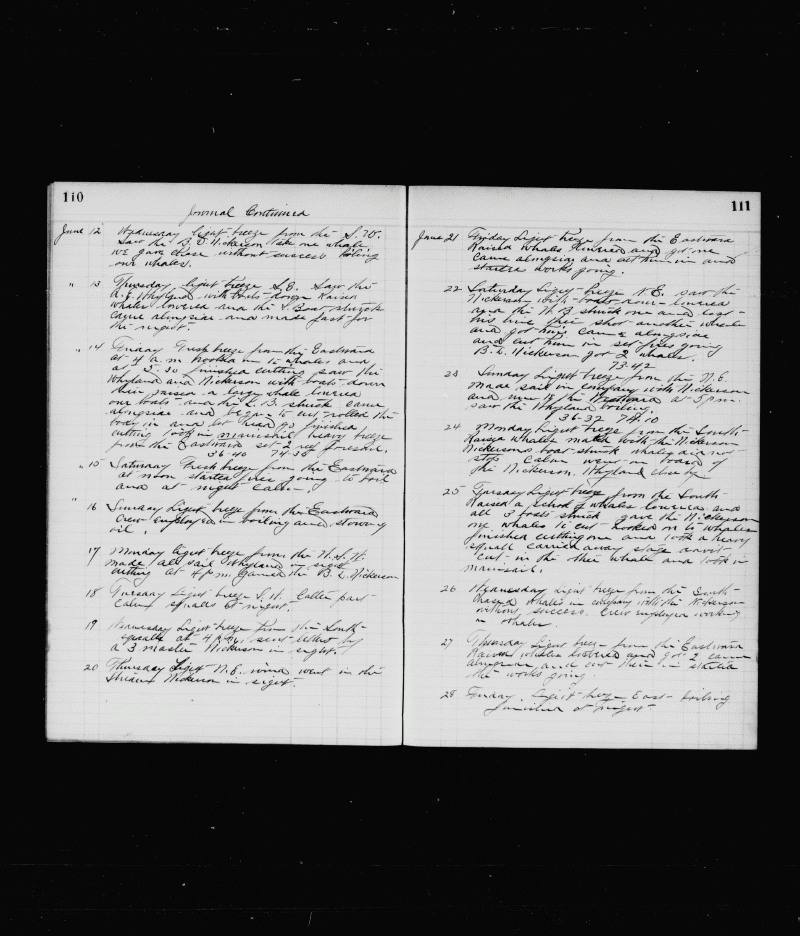 110
Journal Continued
June 12 Wednesday light breeze from the S.W.
Saw the B. D. Nickerson take one whale
we gave chase without success boiling
our whales.
" 13 Thursday light breeze S.E. Saw the
A. R. Whyland with boats down Raised
whales lowered and the S. Boat struck
came alongside and made fast for
the night.
" 14 Friday Fresh breeze from the Eastward
at 4 a.m. hooked on to whales and
at 5-30 finished cutting saw the
Whyland and Nickerson with boats down
then raised a large whale lowered
our boats and the L.B. struck came
alongside and began to cut, rolled the
body in and let head go finished
cutting took in mainsail heavy breeze
from the Eastward set 2 reef foresail.
36-40 74-38
" 15 Saturday Fresh breeze from the Eastward
at noon started fire going to boil
and at night calm.
" 16 Sunday light breeze from the Eastward
Crew employed in boiling and stowing
oil.
17 Monday light breeze from the W.S.W.
made all sail Whyland in sight
cutting at 4 p.m. Gamed the B. D. Nickerson
18 Tuesday light breeze S.W. latter part
calm squalls at night.
19 Wednesday light breeze from the South
speak at 4 p.m. sent letter by
a 3 master Nickerson in sight.
20 Thursday Light N.E. wind went in the
Stream Nickerson in sight.
111
June 21 Friday Light breeze from the Eastward
Raised whales lowered and got one
came alongside and cut him in and
started works going.
22 Saturday Light breeze N.E. saw the
Nickerson with boats down lowered
and the W. B struck one and lost
his line then shot another whale
and got him came alongside
and cut him in set fires going
B. D. Nickerson got 2 whales.
73-42
23 Sunday light breeze from the N.E.
made sail in company with Nickerson
and went to the Westward at 5 p.m.
saw the Whyland boiling.
36-32 74.10
24 Monday light breeze from the South
Raised whales mated with the Nickerson
Nickersons boat struck whale did not
stop Calm went on board of
the Nickerson. Whyland close by
25 Tuesday Light breeze from the South
Raised a school of whales lowered and
all 3 boats struck gave the Nickerson
one whale to cut hooked on to whales
finished cutting one and took a heavy
squall carried away stage davit
cut in the other whale and took in
mainsail.
26 Wednesday Light breeze from the South
chased whales in company with the Nickerson
without success. Crew employed working
on whale.
27 Thursday Light breeze from the Eastward
Raised whales lowered and got 2 came
alongside and cut them in started
the works going.
28 Friday, Light breeze East boiling
finished at night.